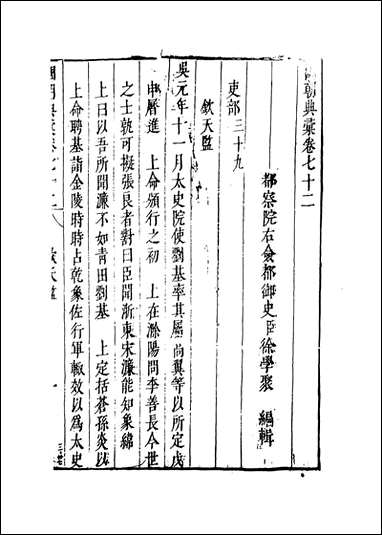 國朝典彙卷七十二
都察院右僉都御史臣徐學聚 編輯
吏部三十九
欽天監
吳元年十一月太史院使劉基率其屬尚翼等以所定戊
申曆進 上命頒行之初 上在滁陽問李善長今世
之士孰可擬張良者對曰臣聞浙東宋濂能知象緯
上曰以吾所聞濂不如青田劉基 上定括蒼孫炎以
上命聘基詣金陵時時占乾象佐行軍輙效以為太史